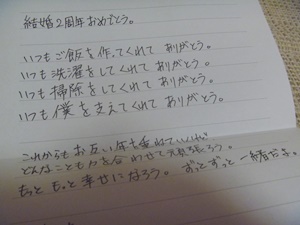 結婚2周年おめでとう。
いつもご飯を作ってくれて ありがとう。
いつも洗濯をしてくれて ありがとう。
いつも掃除をしてくれて ありがとう。
いつも僕を支えてくれて ありがとう。
これからも お互い年を重ねていくけど
どんなことも力を合わせて頑張ろう。
もっと もっと幸せになろう。ずっとずっと一緒だよ。